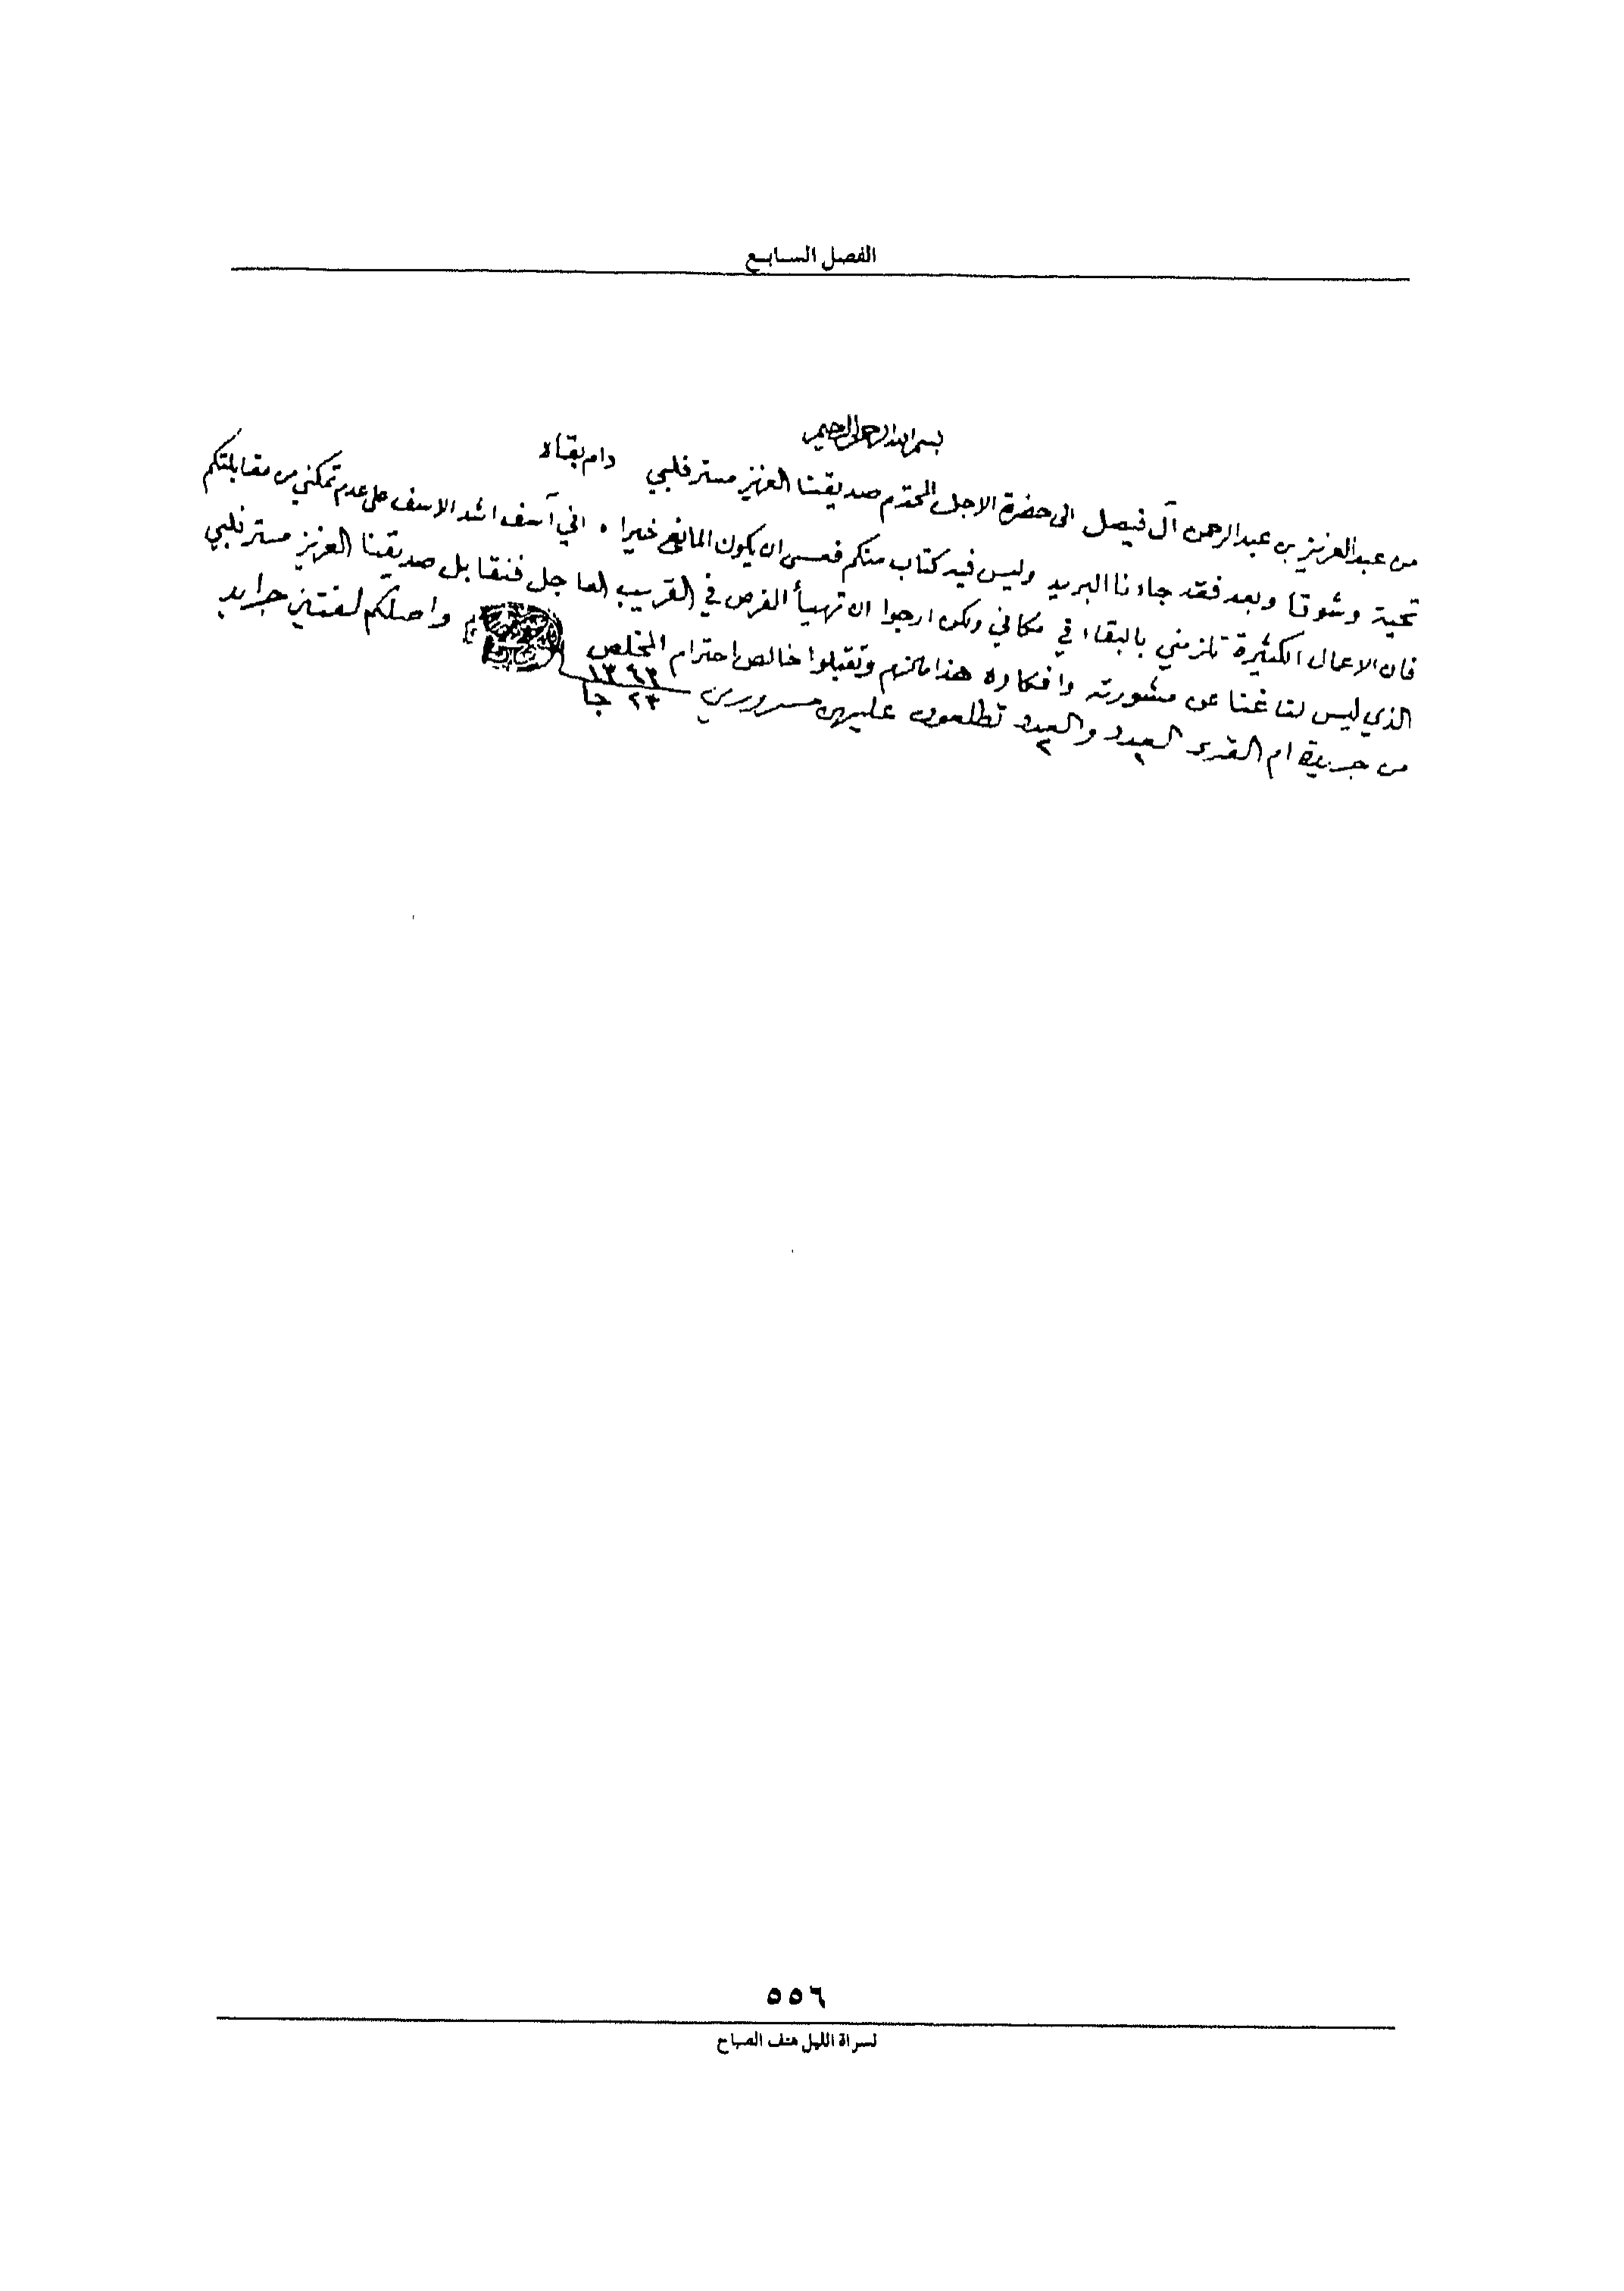 الفصل السابع
بسم الله الرحمن الرحيم
من عبدالعزيز بن عبدالرحمن آل فيصل الى حضرة الاجل المحترم صديقنا العزيز مستر فلبي دام بقاه
تحية وشوقا وبعد فقد جاءنا البريد وليس فيه كتاب منكم فعسى ان يكون المانع خيرا ٠ اني آسف اشد الاسف على عدم تمكني من مقابلتكم
فان الاعمال الكثيرة تلزمني بالبقاء في مكاني ولكن ارجوا ان تهيأ الفرص في القريب العاجل فنقابل صديقنا العزيز مستر فلبي
الذي ليس لنا غنا عن مشورته وافكاره هذا مالزم وتقبلوا خالص احترام المخلص واصلكم لفتين جرايد
من جريدة ام القرى العدد ١ والعدد ٢ تطلعون عليهن مسرورين
٢٣ جا
٥٥٦
لسراة الليل هتف الصباح